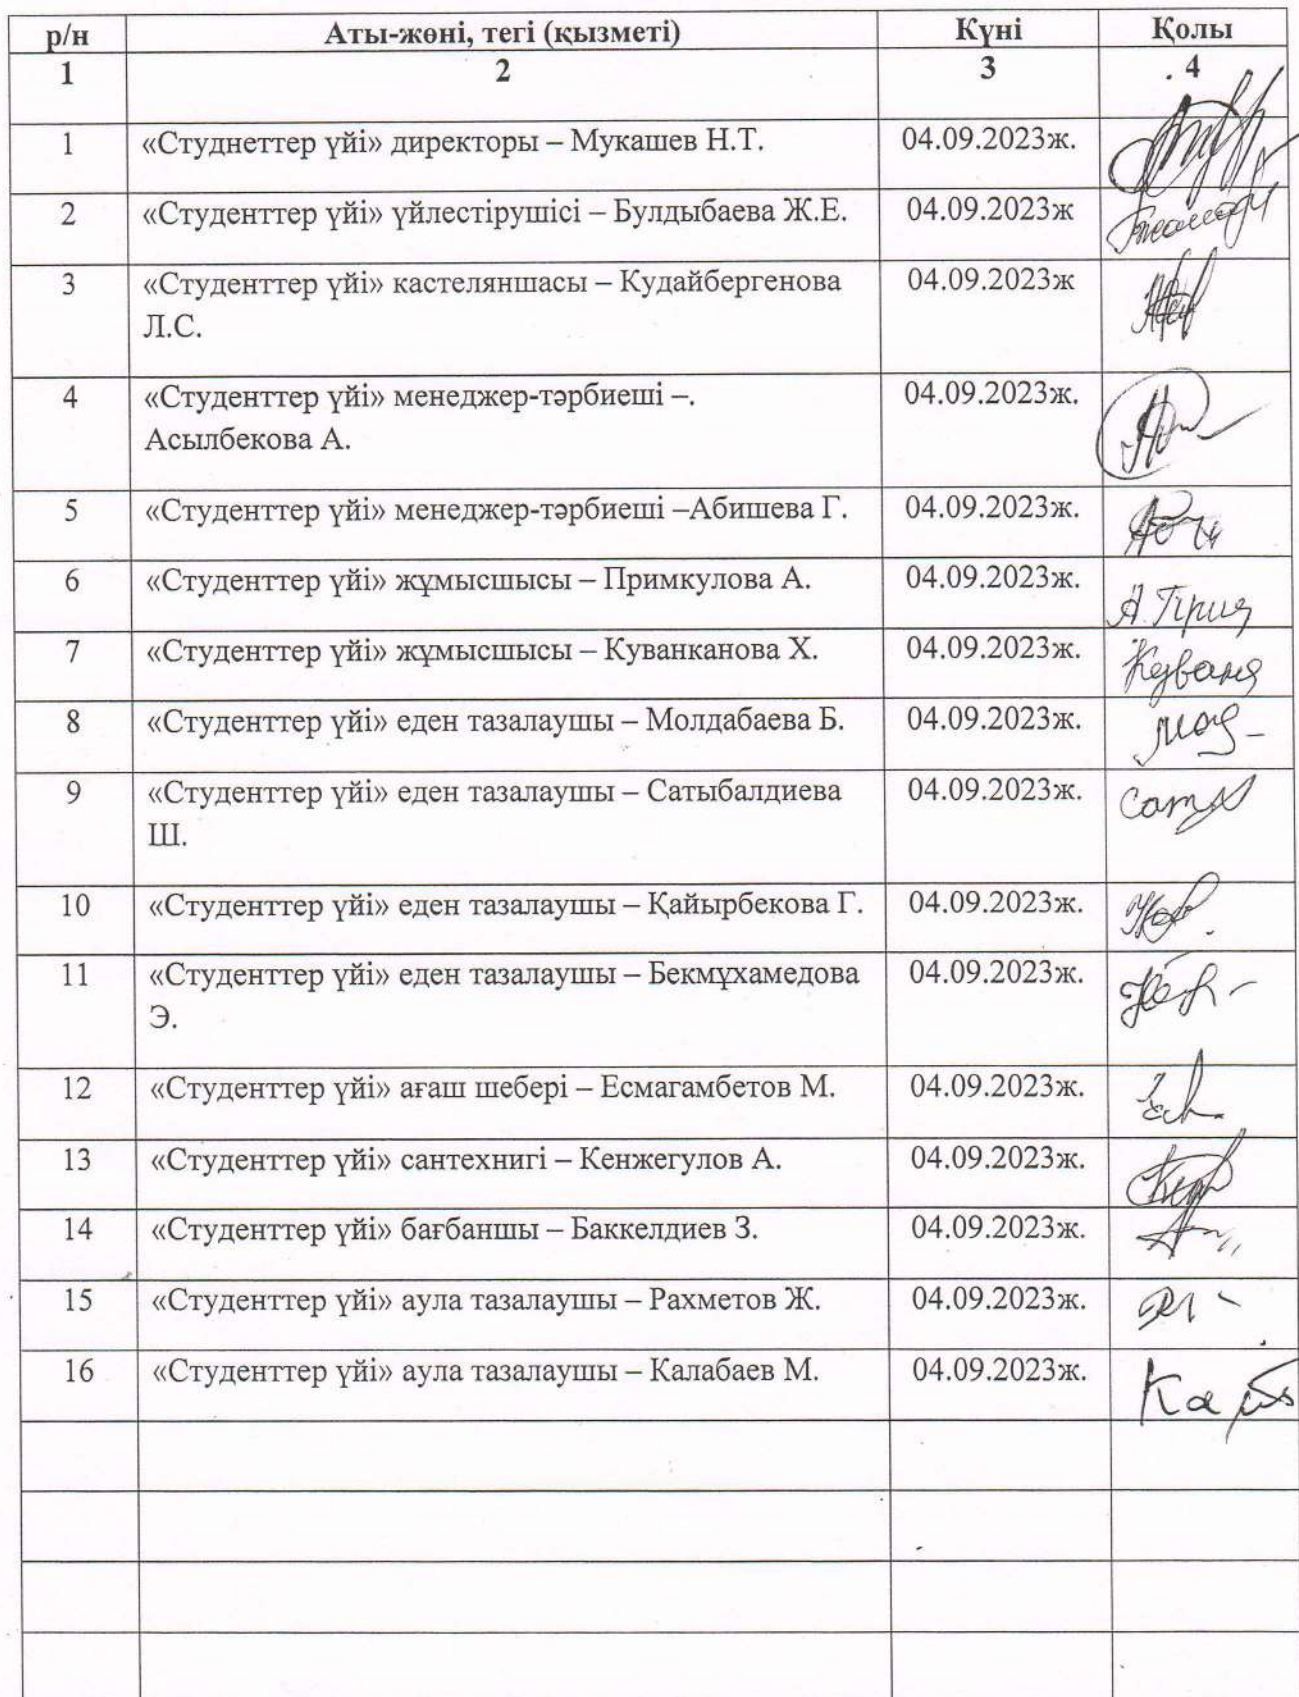 р/н Аты-жөні, тегі (қызметі) Күні Қолы
1 2 3 4
1 «Студнеттер үйі» директоры – Мукашев Н.Т. 04.09.2023ж.
2 «Студенттер үйі» үйлестірушісі – Булдыбаева Ж.Е. 04.09.2023ж
3 «Студенттер үйі» кастеляншасы – Кудайбергенова 04.09.2023ж
Л.С.
4 «Студенттер үйі» менеджер-тәрбиеші –. 04.09.2023ж.
Асылбекова А.
5 «Студенттер үйі» менеджер-тәрбиеші –Абишева Г. 04.09.2023ж.
6 «Студенттер үйі» жұмысшысы – Примкулова А. 04.09.2023ж.
7 «Студенттер үйі» жұмысшысы – Куванканова Х. 04.09.2023ж.
8 «Студенттер үйі» еден тазалаушы – Молдабаева Б. 04.09.2023ж.
9 «Студенттер үйі» еден тазалаушы – Сатыбалдиева 04.09.2023ж.
Ш.
10 «Студенттер үйі» еден тазалаушы – Қайырбекова Г. 04.09.2023ж.
11 «Студенттер үйі» еден тазалаушы – Бекмұхамедова 04.09.2023ж.
Э.
12 «Студенттер үйі» ағаш шебері – Есмагамбетов М. 04.09.2023ж.
13 «Студенттер үйі» сантехнигі – Кенжегулов А. 04.09.2023ж.
14 «Студенттер үйі» бағбаншы – Баккелдиев З. 04.09.2023ж.
15 «Студенттер үйі» аула тазалаушы – Рахметов Ж. 04.09.2023ж.
16 «Студенттер үйі» аула тазалаушы – Калабаев М. 04.09.2023ж.